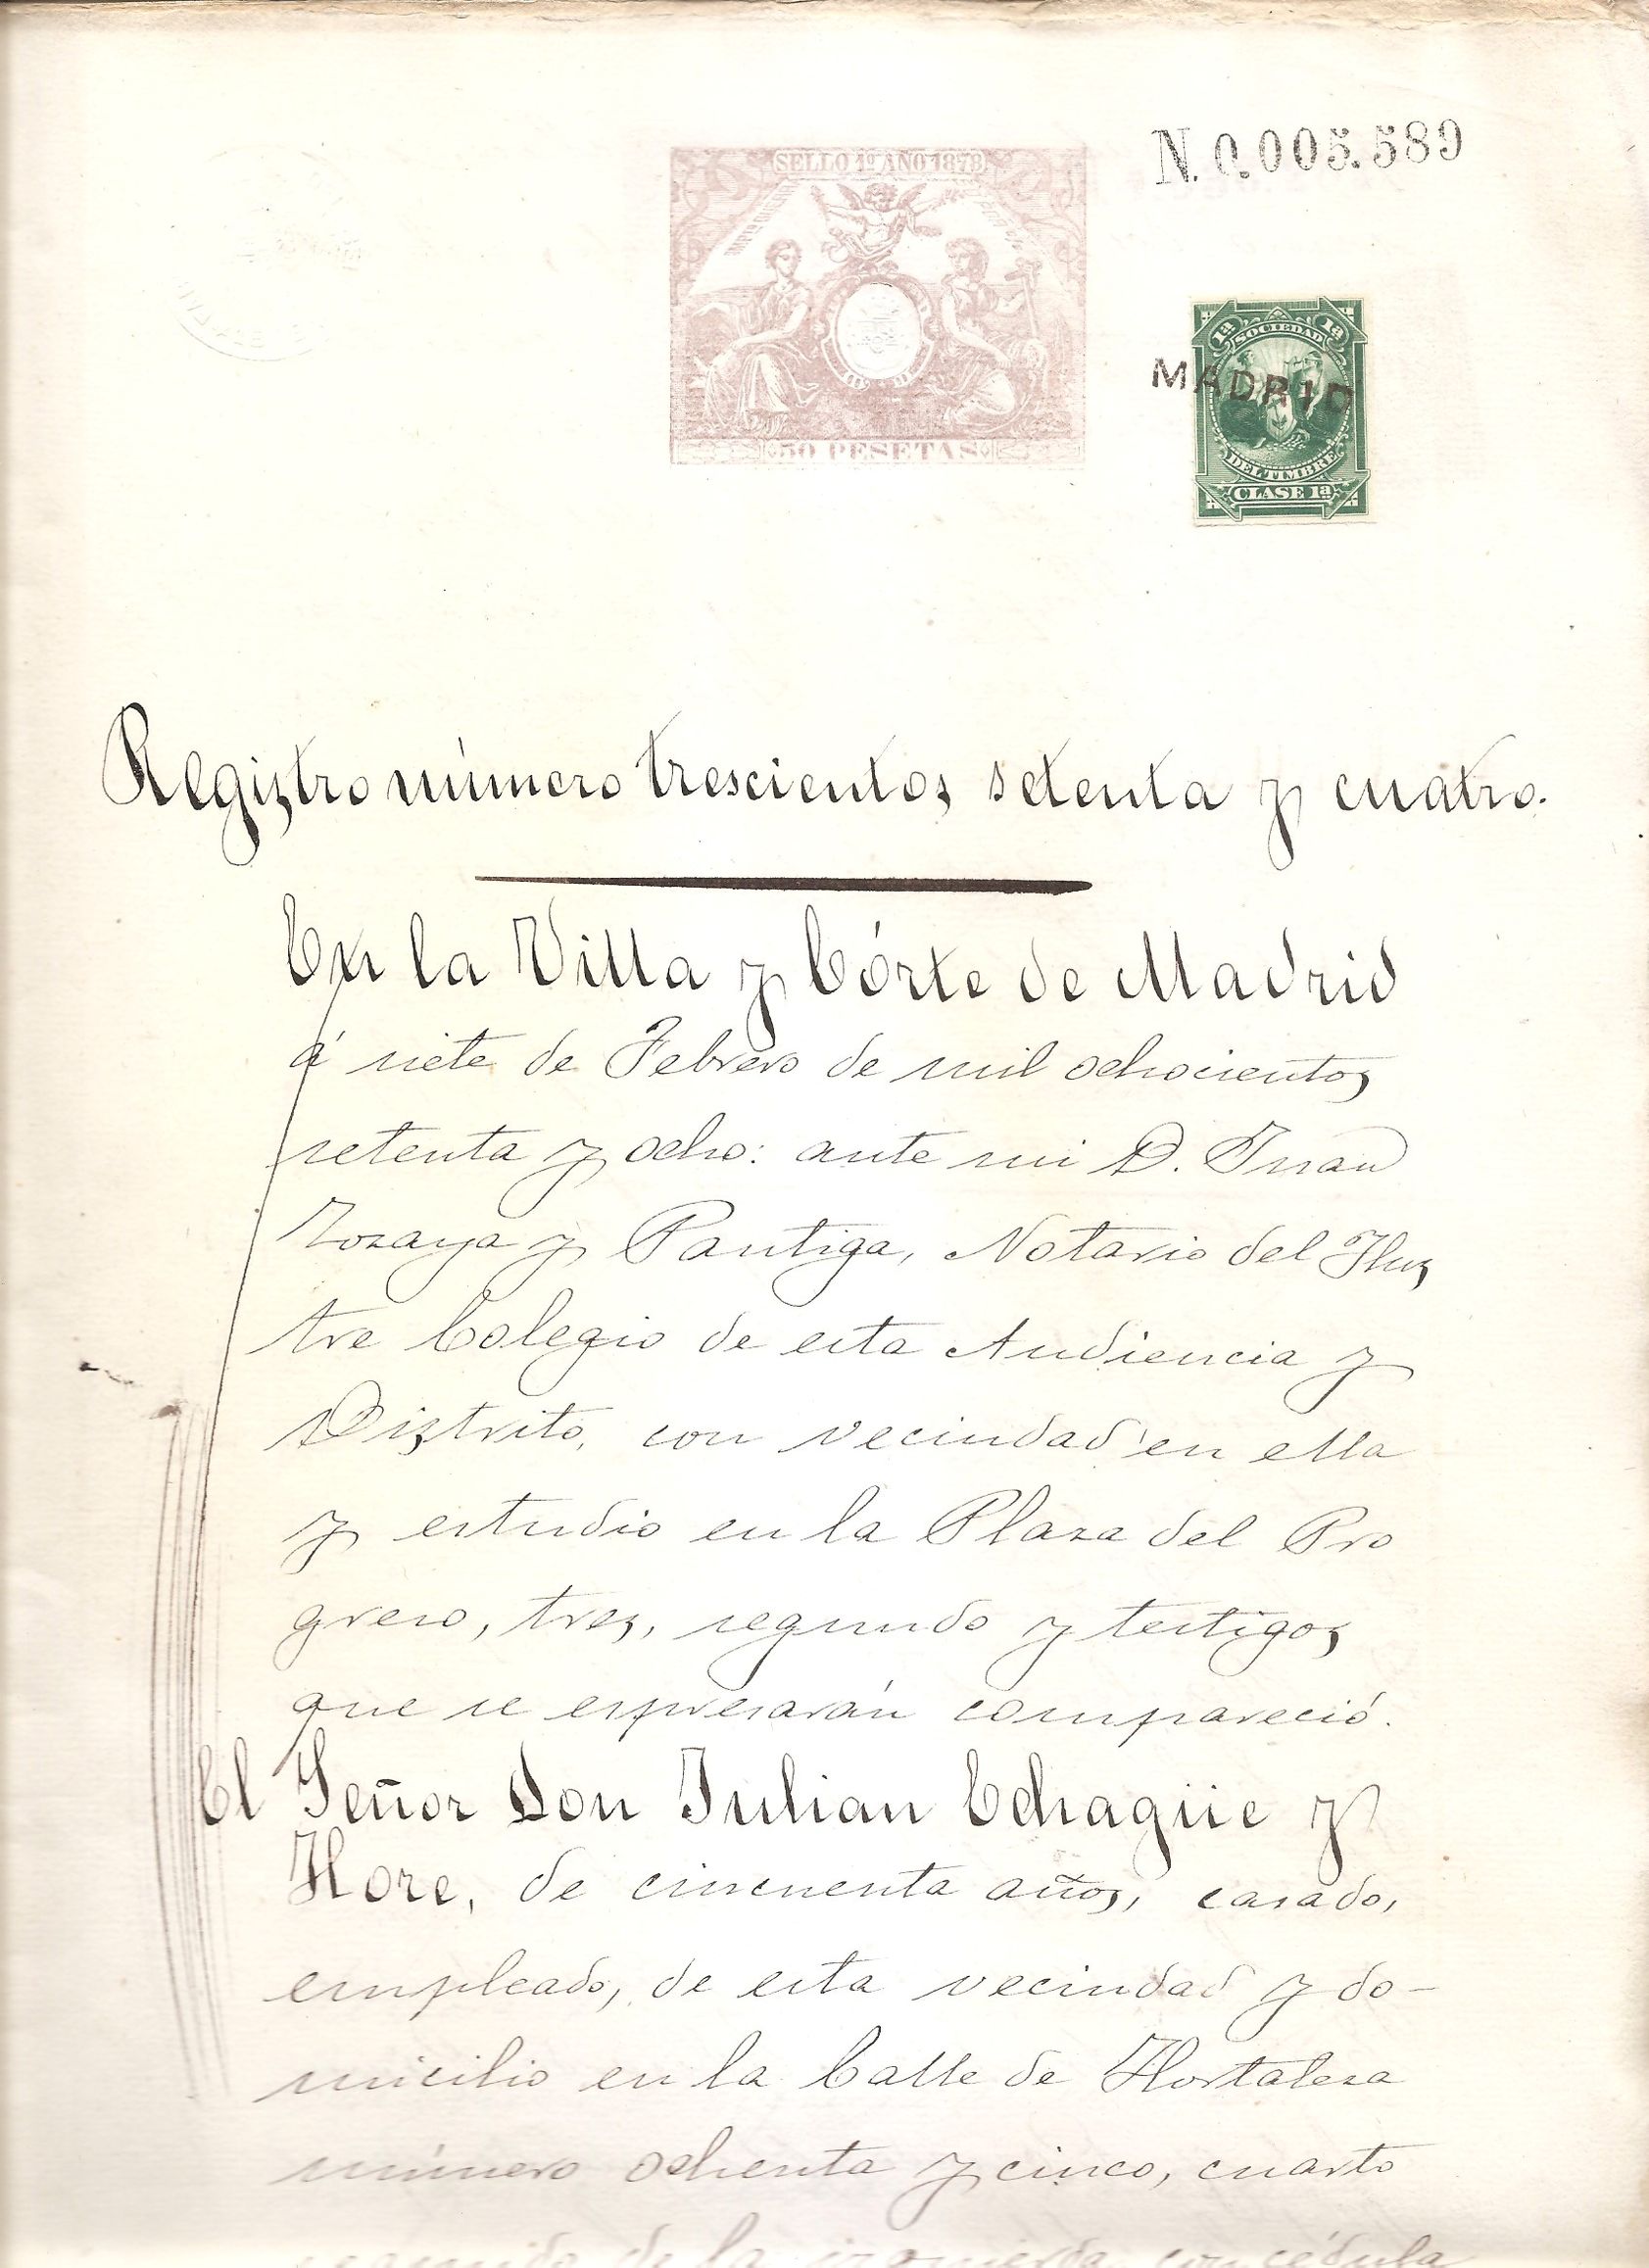 SELLO 1º AÑO 1878
N. 0.005.589
50 PESETAS
1ª SOCIEDAD 1ª
MADRID
DEL TIMBRE
CLASE 1ª
Registro número trescientos setenta y cuatro.
En la Villa y Córte de Madrid
á siete de Febrero de mil ochocientos
setenta y ocho: ante mi D. Juan
Zozaya y Pantiga, Notario del Ilus
tre Colegio de esta Audiencia y
Distrito, con vecindad en ella
y estudio en la Plaza del Pro
greso, tres, segundo y testigos
que se espresarán compareció.
El Señor Don Julian Echagüe y
Hore, de cincuenta años, casado,
empleado, de esta vecindad y do-
micilio en la Calle de Hortaleza
número ochenta y cinco, cuarto
segundo de la izquierda, con cédula